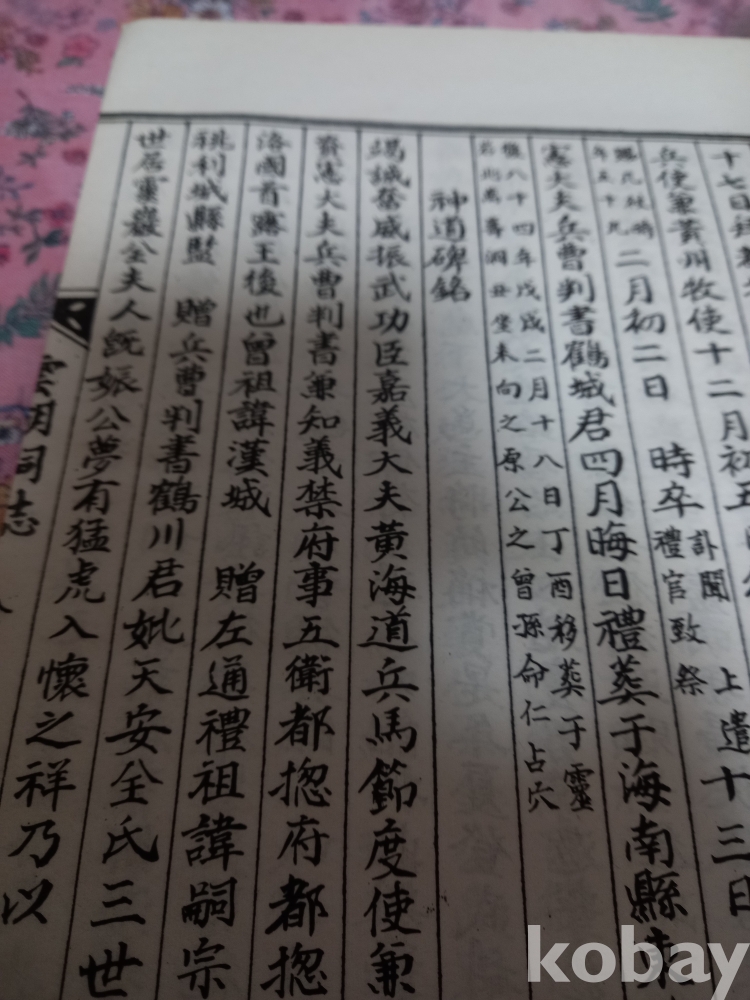 十七日
兵使兼黃州牧使十二月初五
二月初二日 時卒 訃聞 上遣
禮官致祭 十三日
憲大夫兵曹判書鶴城君四月晦日禮葬于海南縣
後八十四年戊戌二月十八日丁酉移葬于靈
丑坐未向之原公之曾孫命仁占穴
神道碑銘
竭誠奮威振武功臣嘉義大夫黃海道兵馬節度使兼
資憲大夫兵曹判書兼知義禁府事五衛都揔府都揔
洛國首露王後也曾祖諱漢城 贈左通禮祖諱嗣宗
利城縣監 贈兵曹判書鶴川君妣天安全氏三世
世居靈巖全夫人旣娠公夢有猛虎入懷之祥乃以
祠志
kobay